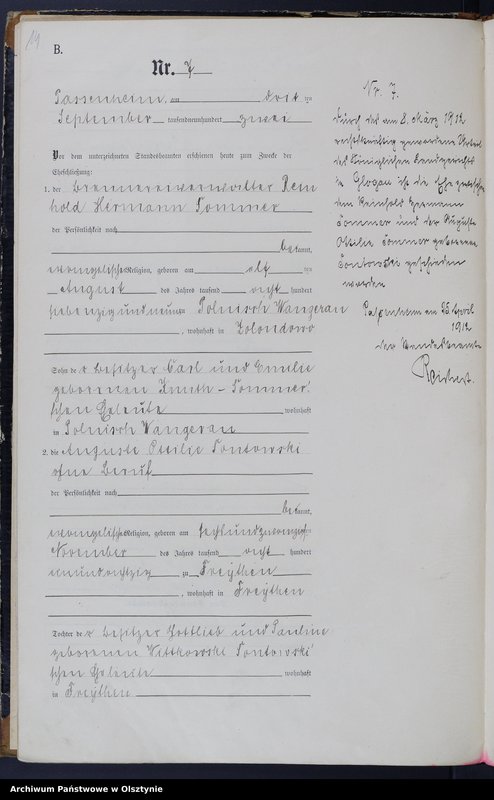 14
B.
Nr. 7
Passenheim, am drit ten
September tausendneunhundert zwei
Vor dem unterzeichneten Standesbeamten erschienen heute zum Zwecke der
Eheschließung:
1. der Brennereiverwalter Rein
hold Hermann Sommer
der Persönlichkeit nach
be kannt,
evangelischer Religion, geboren am elf ten
August des Jahres tausend acht hundert
siebenzig und neun zu Polnisch Wangerau
, wohnhaft in
Sohn des Besitzer Carl und Emilie
geborenen Knuth - Sommer'
schen Eheleute wohnhaft
in Polnisch Wangerau
2. die Auguste Ottilie Pontowski
ohne Beruf
der Persönlichkeit nach
be kannt,
evangelischer Religion, geboren am sechsundzwanzigsten
November des Jahres tausend acht hundert
einundachtzig zu Freythen
, wohnhaft in Freythen
Tochter der Besitzer Gottlieb und Pauline
geborenen Wittkowski Pontowski'
schen Eheleute wohnhaft
in Freythen
Nr. 7.
Durch das am 8. März 1912
rechtskräftig gewordene Urteil
des Königlichen Landgerichts
in Glogau ist die Ehe zwischen
dem Reinhold Hermann
Sommer und der Auguste
Ottilie Sommer geborenen
Pontowski geschieden
worden.
Passenheim am 25. April
1912
Der Standesbeamte
Archiwum Państwowe w Olsztynie